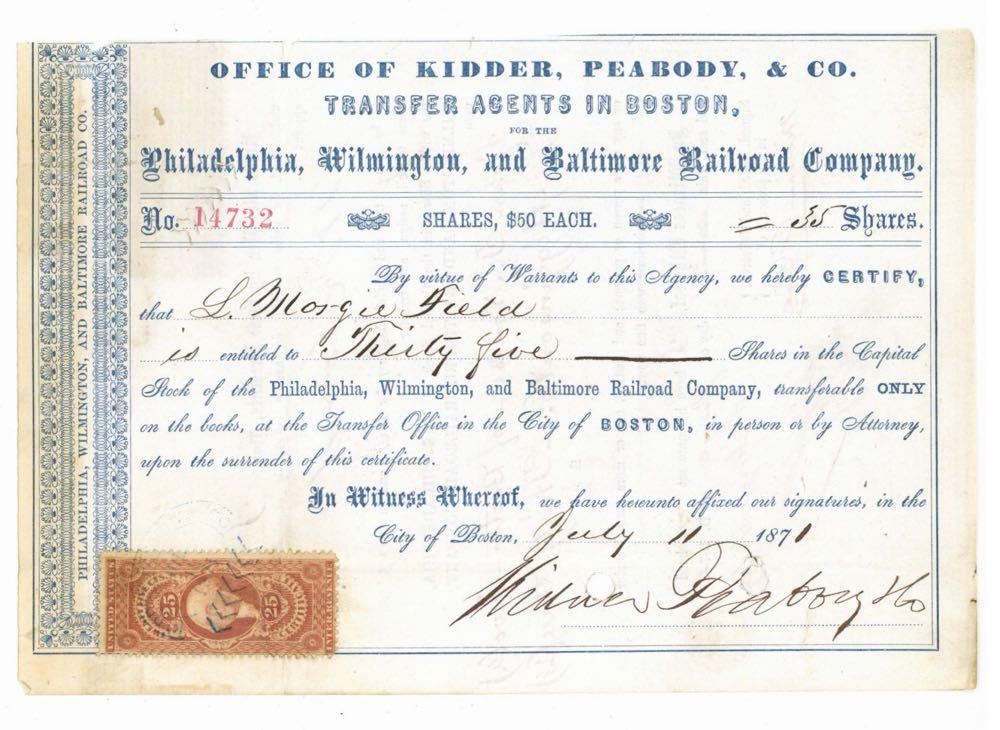 OFFICE OF KIDDER, PEABODY, & CO.
TRANSFER AGENTS IN BOSTON,
FOR THE
Philadelphia, Wilmington, and Baltimore Railroad Company.
No. 14732 SHARES, $50 EACH. = 35 Shares.
By virtue of Warrants to this Agency, we hereby CERTIFY,
that L. Morgie Field
is entitled to Thirty five Shares in the Capital
Stock of the Philadelphia, Wilmington, and Baltimore Railroad Company, transferable ONLY
on the books, at the Transfer Office in the City of BOSTON, in person or by Attorney,
upon the surrender of this certificate.
In Witness Whereof, we have hereunto affixed our signatures, in the
City of Boston, July 11 1871
Kidder Peabody & Co
PHILADELPHIA, WILMINGTON, AND BALTIMORE RAILROAD CO.
25 25